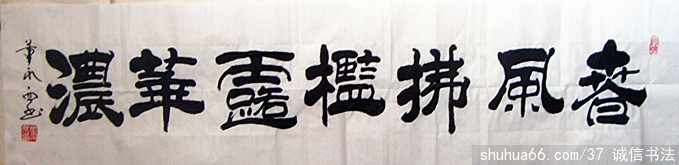 春風拂檻露華濃
shuhua66.com/37 诚信书法